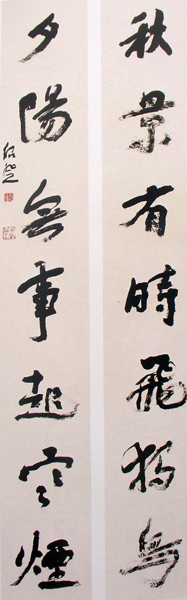 秋景有時飛獨鳥
夕陽無事起寒煙